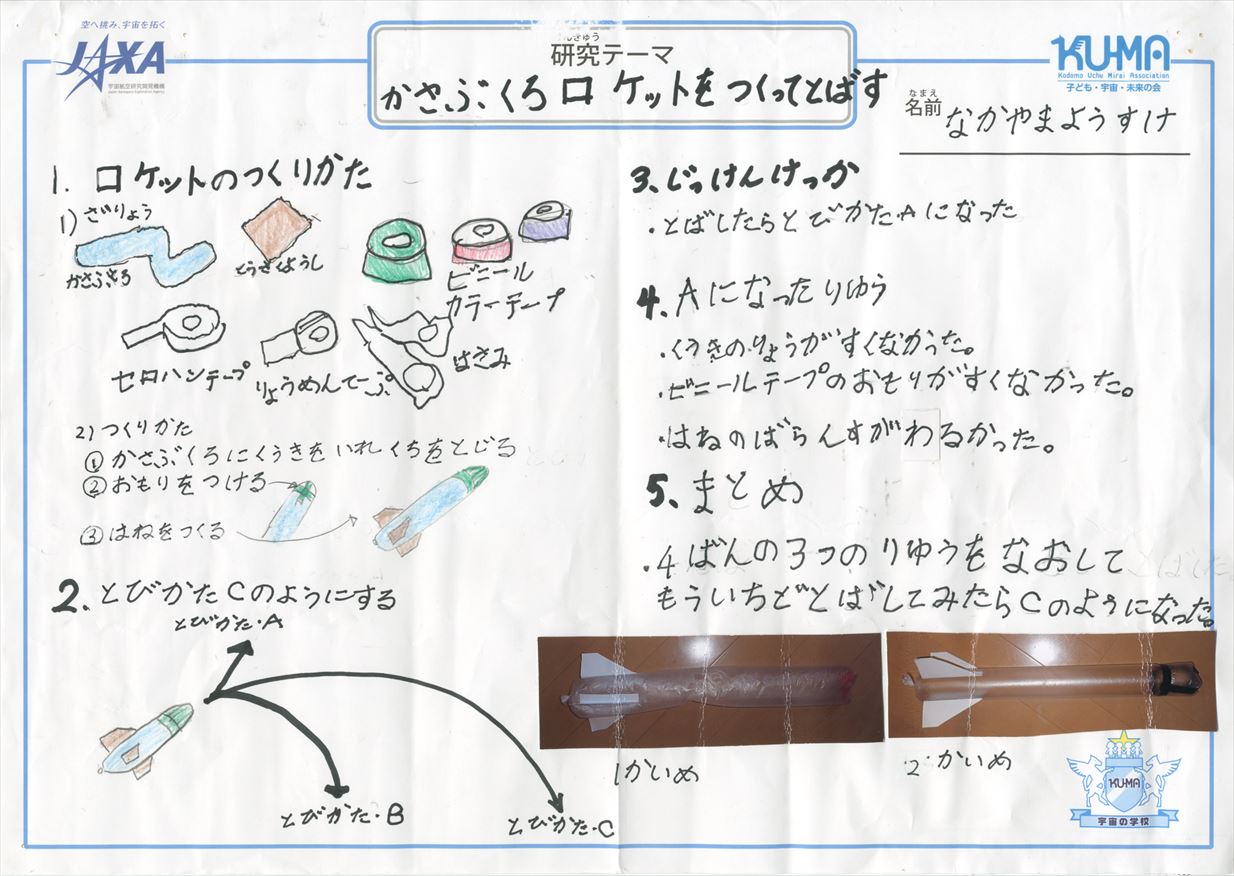 空へ挑み、宇宙を拓く
JAXA
宇宙航空研究開発機構
Japan Aerospace Exploration Agency
研究テーマ
かさぶくろロケットをつくってとばす
KU-MA
Kodomo Uchu Mirai Association
子ども・宇宙・未来の会
なまえ
名前 なかやまようすけ
1. ロケットのつくりかた
1) ざいりょう
かさぶくろ
こうさくようし
ビニール
カラーテープ
セロハンテープ
りょうめんてーぷ
はさみ
2) つくりかた
① かさぶくろにくうきをいれくちをとじる
② おもりをつける
③ はねをつくる
2. とびかたCのようにする
とびかた・A
とびかた・B
とびかた・C
3、じっけんけっか
・とばしたらとびかた・Aになった
4. Aになったりゆう
・くうきのりょうがすくなかった。
・ビニールテープのおもりがすくなかった。
・はねのばらんすがわるかった。
5、まとめ
・4ばんの3つのりゆうをなおして
もういちどとばしてみたらCのようになった。
1かいめ
2かいめ
KU-MA
宇宙の学校